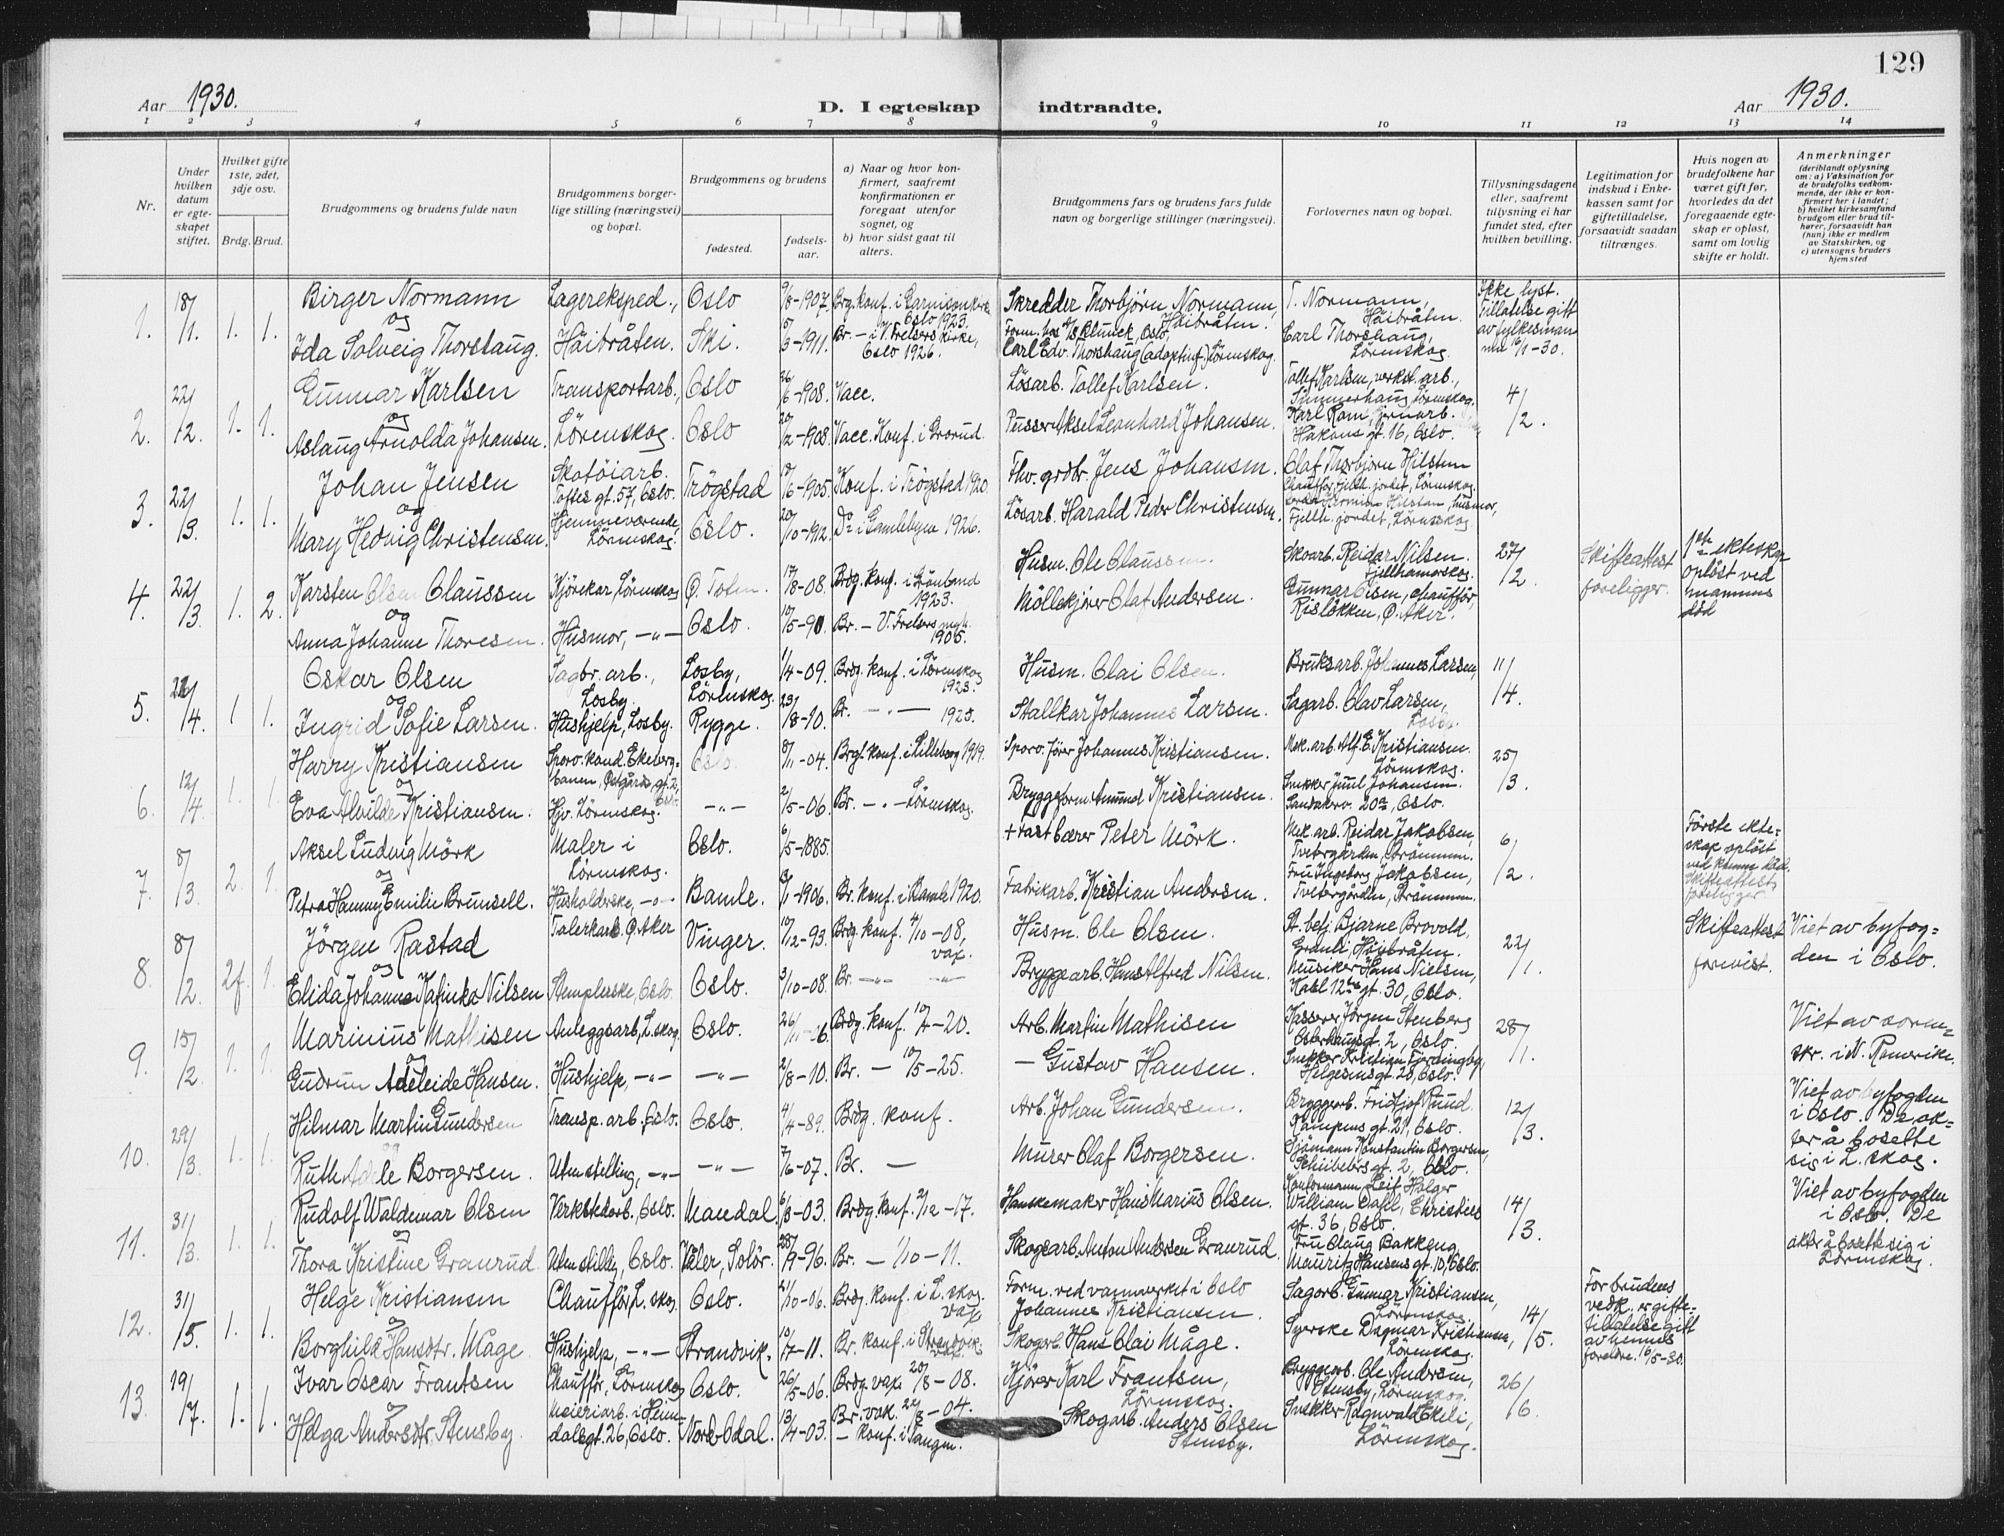 129
Aar 1930.
D. I egteskap indtraadte.
Aar 1930.
1 2 3 4 5 6 7 8 9 10 11 12 13 14
Nr.
Under hvilken datum er egteskapet stiftet.
Hvilket gifte 1ste, 2det, 3dje osv.
Brdg. Brud.
Brudgommens og brudens fulde navn
Brudgommens borgerlige stilling (næringsvei) og bopæl.
Brudgommens og brudens
fødested.
fødselsaar.
a) Naar og hvor konfirmert, saafremt konfirmationen er foregaat utenfor sognet, og
b) hvor sidst gaat til alters.
Brudgommens fars og brudens fars fulde navn og borgerlige stillinger (næringsvei).
Forlovernes navn og bopæl.
Tillysningsdagene eller, saafremt tillysning ei har fundet sted, efter hvilken bevilling.
Legitimation for indskud i Enkekassen samt for giftetilladelse, forsaavidt saadan tiltrænges.
Hvis nogen av brudefolkene har været gift før, hvorledes da det foregaaende egteskap er opløst, samt om lovlig skifte er holdt.
Anmerkninger
(deriblandt oplysning om: a) Vaksination for de brudefolks vedkommende, der ikke er konfirmert her i landet;
b) hvilket kirkesamfund brudgom eller brud tilhører, forsaavidt han (hun) ikke er medlem av Statskirken, og
c) utensogns bruders hjemsted
1. 18/1. 1. 1.
Birger Normann
og
Ida Solveig Thorshaug.
Lagereksped.,
Håibråten.
Oslo
Ski.
9/8-1907.
5/3-1911.
Brg. konf. i Garnisonkirk.
Oslo 1923.
Br. – i V. Frelsers kirke,
Oslo 1926.
Skredder Thorbjörn Normann,
Håibråten.
Carl Edv. Thorshaug (adoptivf.) Lörenskog.
T. Normann,
Håibråten.
Carl Thorshaug,
Lörenskog.
Ikke lyst.
Tillatelse gitt
av fylkesman
nen 16/1-30.
2. 22/2. 1. 1.
Gunnar Karlsen
og
Aslaug Arnolda Johansen.
Transportarb.,
Lörenskog.
Oslo
Oslo
26/6-1908.
20/2-1908.
Vacc.
Vacc. Konf. i Grorud.
Lösarb. Tollef Karlsen.
Pusser Aksel Leonhard Johansen.
Tollef Karlsen, verkst. arb.,
Lörenskog.
Karl Ram, jernarb.
Håkons gt. 16, Oslo.
4/2.
3. 22/3. 1. 1.
Johan Jensen
og
Mary Hedvig Christensen.
Skotöiarb.
Toftes gt. 57, Oslo.
Hjemmeværende,
Lörenskog.
Trögstad
Oslo.
/6-1905.
20/10-1912.
Konf. i Trögstad 1920.
Do i Gamlebyen 1926.
Fhv. grdbr. Jens Johansen
Lösarb. Harald Peder Christensen.
Olaf Thorbjörn Hilsten
Lörenskog.
Lörenskog
4. 22/3. 1. 2.
Karsten Olsen Claussen
og
Anna Johanne Thoresen
Kjörekar, Lörenskog
Husmor, –"–
Ö. Toten.
Oslo.
17/8-08.
10/5-90.
Brdg. konf. i
1923.
Br. – V. Frelsers
1905.
Husm. Ole Claussen.
Möllekjörer Olaf Andersen.
Skoarb. Reidar Nilsen.
Fjellhamarskog.
Gunnar Olsen, chaufför,
Risløkken, Ö. Aker.
27/2.
Skifteattest
foreligger.
1ste ekteskap
opløst ved
mannens
död
5. 22/4. 1 1.
Oskar Olsen
og
Ingrid Sofie Larsen.
Sagbr. arb.,
Losby.
Hushjelp, Losby.
Losby,
Lörenskog.
Rygge.
1/4-09.
23/8-10.
Brdg. konf. i Lörenskog
1923.
Br. – " – 1925.
Husm. Olai Olsen.
Stallkar Johannes Larsen.
Bruksarb. Johannes Larsen,
Sagarb. Olav Larsen,
Losby.
11/4.
6. 12/4. 1. 1.
Harry Kristiansen
og
Eva Alvilde Kristiansen.
Sporv. kond. Ekebergbanen,
Oslo.
Hjv. Lörenskog.
Oslo.
–"–
8/11-04.
2/5-06.
Brdg. konf. i Lilleborg 1919.
Br. – " – Lörenskog.
Sporv. förer Johannes Kristiansen.
Bryggeform. Amund Kristiansen.
Mek. arb. Alf. E. Kristiansen.
Lörenskog.
Snekker Juul Johansen.
Sandakerv. 20a, Oslo.
25/3.
7. 8/3. 2. 1.
Aksel Ludvig Mörk
og
Petra Hanny Emilie Brunsell.
Maler i
Lörenskog.
Husholderske, –"–
Oslo.
Bamle.
6/5-1885.
/1-1906.
Br. konf. i Bamle 1920.
+ Fastbærer Peter Mörk.
Fabrikarb. Kristian Andersen.
Mek. arb. Reidar Jakobsen,
Tvetergården, Strömmen.
Fru Ingeborg Jakobsen,
Tvetergården, Strömmen.
6/2.
Förste ektes-
kap oplöst
ved konens död.
Skifteattest
foreligger.
8. 8/2. 2f. 1.
Jörgen Rastad
og
Elida Johanne Katinka Nilsen
Ö. Aker
Stemplerske, Oslo.
Vinger.
Oslo.
10/12-93.
3/10-08.
Brdg. konf. 4/10-08,
vax.
Br. –"– –"–
Husm. Ole Olsen.
Bryggearb. Hans Alfred Nilsen.
St. betj. Bjarne Brovold,
Granli, Håibråten.
Musiker Hans Nielsen,
gt. 30, Oslo.
22/1.
Skifteattest
forevist.
Viet av byfog-
den i Oslo.
9. 15/2. 1. 1.
Marinius Mathisen
og
Gudrun Adeleide Hansen.
Anleggsarb., L. skog.
Hushjelp, –"–
Oslo.
–"–
26/11-06.
2/8-10.
Brdg. konf. -20.
Br. – 10/5-25.
Arb. Martin Mathisen
– Gustav Hansen.
Kasserer Jörgen Stenberg
Osterhausgt. 2, Oslo.
Snekker Kristian Fordingby,
Helgesensgt. 28, Oslo.
28/1.
Viet av soren-
skr. i N. Romerike.
10. 29/3. 1. 1.
Hilmar Martin Gundersen
og
Ruth Adele Borgersen.
Transp. arb., Oslo.
Uten stilling, –"–
Oslo.
–"–
4/4-89.
7/6-07.
Brdg. konf.
Br. –
Arb. Johan Gundersen.
Murer Olaf Borgersen.
Bryggerb. Fridtjof Ruud.
Kampens gt. 21, Oslo.
Sjömann Konstantin Borgersen,
gt. 2, Oslo.
12/3.
Viet av byfogden
i Oslo. De ak-
ter å bosette
sig i L. skog.
11. 31/3. 1. 1.
Rudolf Waldemar Olsen
og
Thora Kristine Granrud.
Verkstedarb., Oslo.
Uten stillg., Oslo.
Mandal.
Våler, Solör.
6/3-03.
28/9-96.
Brdg. konf. 2/12-17.
Br. – 1/10-11.
Hanskemaker Hans Marius Olsen.
Skogsarb. Anton Andersen Granrud.
Kontormann Leif Holger
William Dahl, Christies
gt. 36, Oslo.
Fru Olaug Bakkeng
Mauritz Hansens gt. 10, Oslo.
14/3.
Viet av byfogden
i Oslo. De
akter å bosette sig i
Lörenskog.
12. 31/5. 1. 1.
Helge Kristiansen
og
Borghild Hansdtr. Måge.
Chauffför, L. skog.
Hushjelp, –"–
Oslo.
Strandvik.
21/10-06.
10/7-11.
Brdg. konf. i L. skog.
vax
Br. konf. i Strandvik.
Form. ved vannverket i Oslo
Johannes Kristiansen.
Skogarb. Hans Olai Måge.
Sagarb. Gunnar Kristiansen,
Lörenskog.
Syerske Dagmar Kristiansen,
Lörenskog.
14/5.
For brudens
vedk. er gifte-
tillatelse gitt
av hennes
foreldre. 16/5-30.
13. 19/7. 1. 1.
Ivar Oscar Frantsen
og
Helga Andersdtr. Stensby.
Chauffr., Lörenskog
Meieriarb. i Heim-
dalsgt. 26, Oslo.
Oslo.
Nord-Odal.
26/5-06.
13/4-03.
Brdg. vax. 20/8-08.
Br. vak. 22/8-04.
– konf. i Tangen.
Kjörer Karl Frantsen,
Lörenskog.
Skogarb. Anders Olsen
Stensby.
Bryggearb. Ole Andersen,
Stensby, Lörenskog.
Snekker Ragnvald Ekeli,
Lörenskog.
26/6.